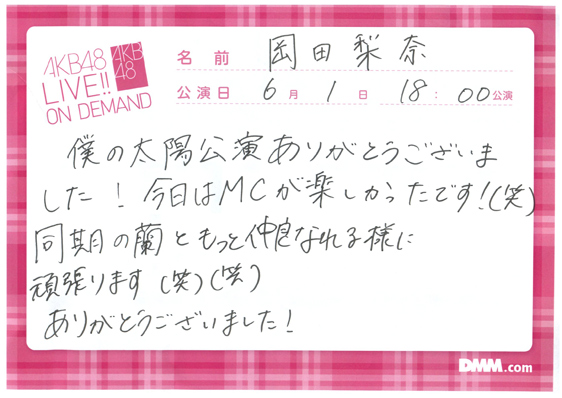 AKB48
LIVE!!
ON DEMAND
AKB
48
名前 岡田梨奈
公演日 6月1日 18:00公演
僕の太陽公演ありがとうございま
した!今日はMCが楽しかったです!(笑)
同期の蘭ともっと仲良なれる様に
頑張ります(笑)(笑)
ありがとうございました!
DMM.com